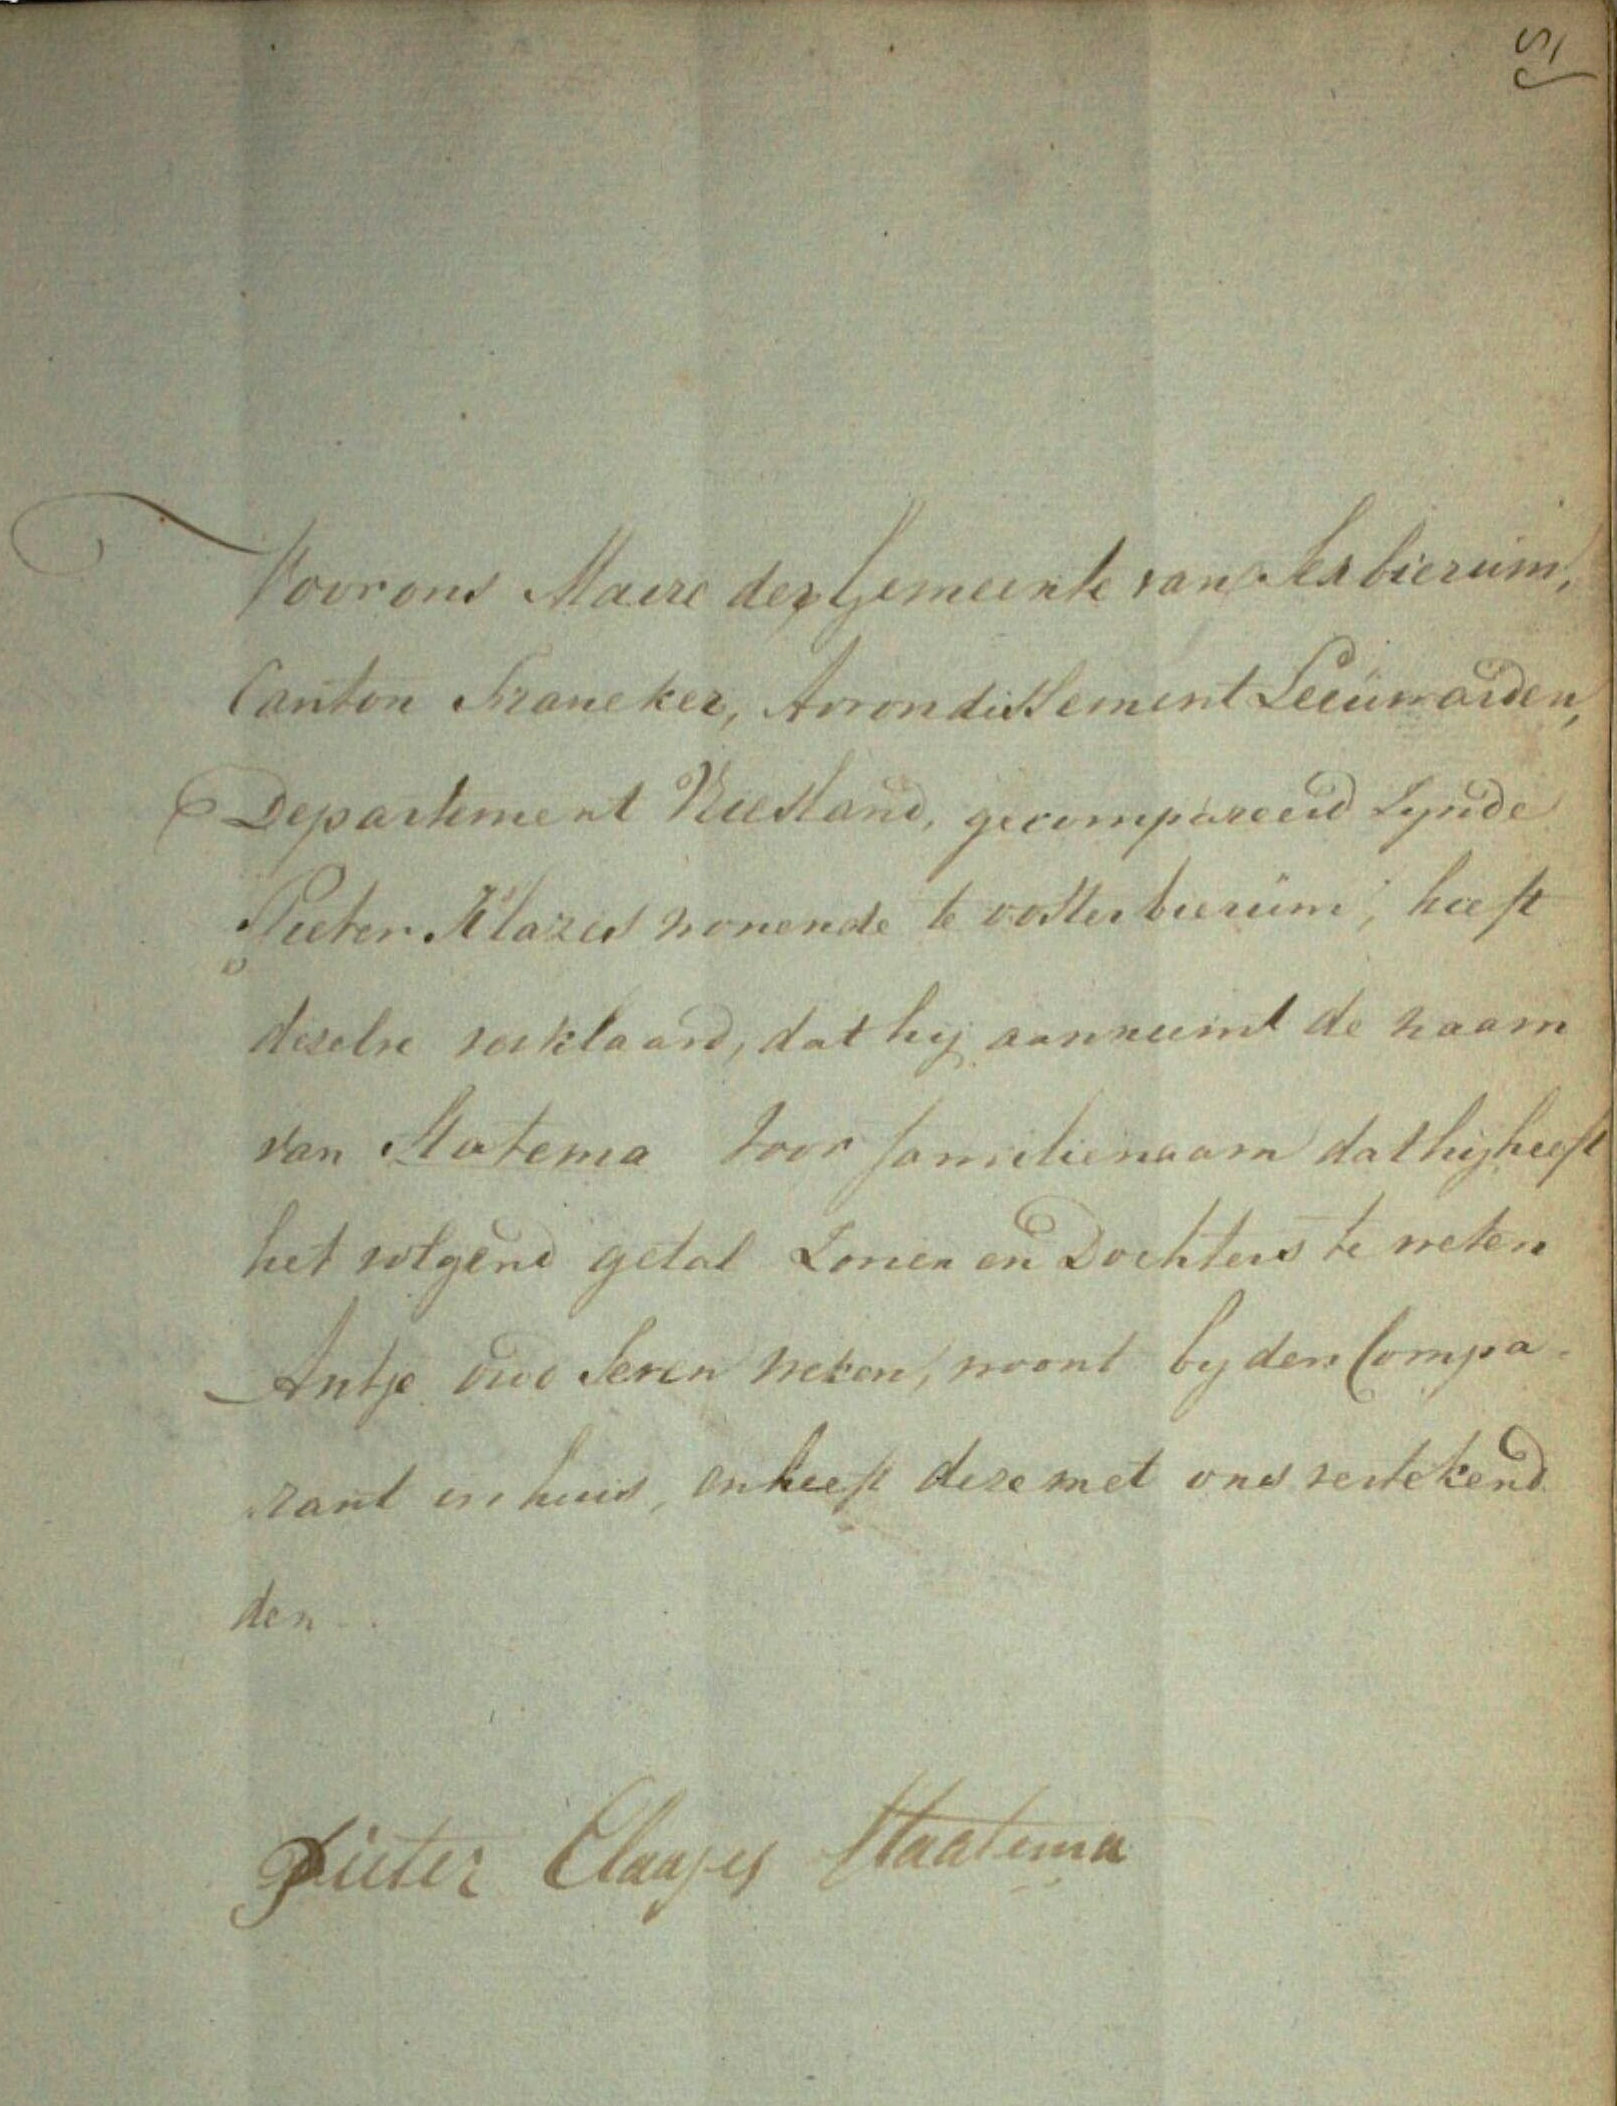 51
Voor ons Maire der Gemeente van Sexbierum,
Canton Franeker, Arrondissement Leeuwarden,
Departement Vriesland, gecompareerd zynde
Pieter Klazes wonende te oosterbierum, heeft
dezelve verklaard, dat hij aanneemt de naam
van Statema voor familienaam dat hij heeft
het volgend getal Zonen en Dochters te weten
Antje oud Seven weken, woont by den Compa-
rant in huis, en heeft deze met ons vertekend
den
Pieter Claases Staatema